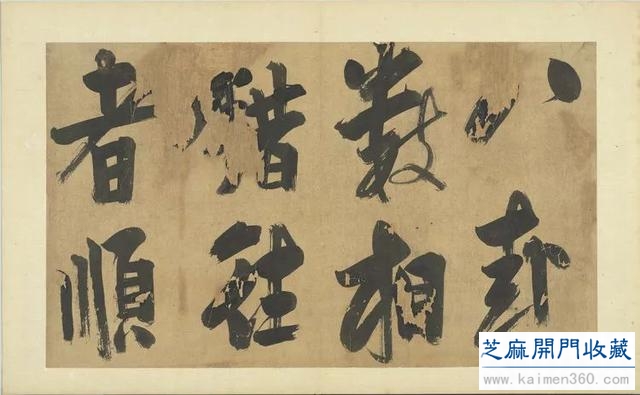 八卦
數相
錯往
者順
芝麻開門收藏
www.kaimen360.com